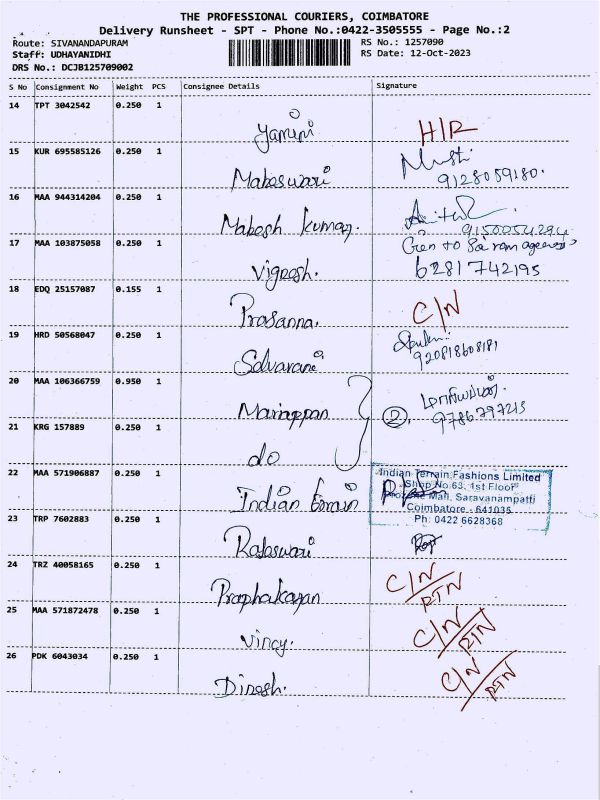 THE PROFESSIONAL COURIERS, COIMBATORE
Delivery Runsheet - SPT - Phone No.:0422-3505555 - Page No.:2
Route: SIVANANDAPURAM RS No.: 1257090
Staff: UDHAYANIDHI RS Date: 12-Oct-2023
DRS No.: DCJB125709002
S No Consignment No Weight PCS Consignee Details Signature
14 TPT 3042542 0.250 1
Yamini H/R
15 KUR 695585126 0.250 1
Maheswari 9128059180.
16 MAA 944314204 0.250 1
Mahesh kumar. 9150054294
17 MAA 103875058 0.250 1
Vignesh. 6281742195
18 EDQ 25157087 0.155 1
Prasanna. C/N
19 HRD 50568047 0.250 1
Selvarani 920818608181
20 MAA 106366759 0.950 1
Mariappan ② மாரியப்பன். 9786797215
21 KRG 157889 0.250 1
do
22 MAA 571906887 0.250 1
Indian Terrain Fashions Limited
Shop No.63, 1st Floor
Mall, Saravanampatti
Coimbatore - 641035
Ph: 0422 6628368
Indian terrain
23 TRP 7602883 0.250 1
Rajeswari
24 TRZ 40058165 0.250 1
Praphakaran C/N RTN
25 MAA 571872478 0.250 1
Vincy. C/N RTN
26 PDK 6043034 0.250 1
Dinesh. C/N RTN